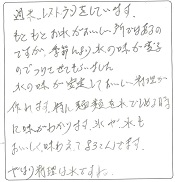 週末、レストランをしています。
もともとお水がおいしい所ではあるの
ですが、季節により水の味が変る
のでつけさせてもらいました
水の味が安定しておいしい料理が
作れます。特に麺類を水でしめる時
に味がかわります。氷や、水も
おいしく味わえてよろこんでます。
やはり料理は水ですね。